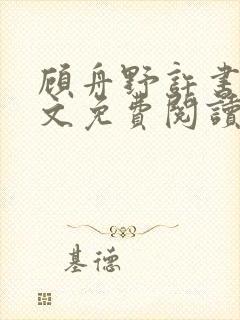 顾舟野許書
文免費閱讀
基德